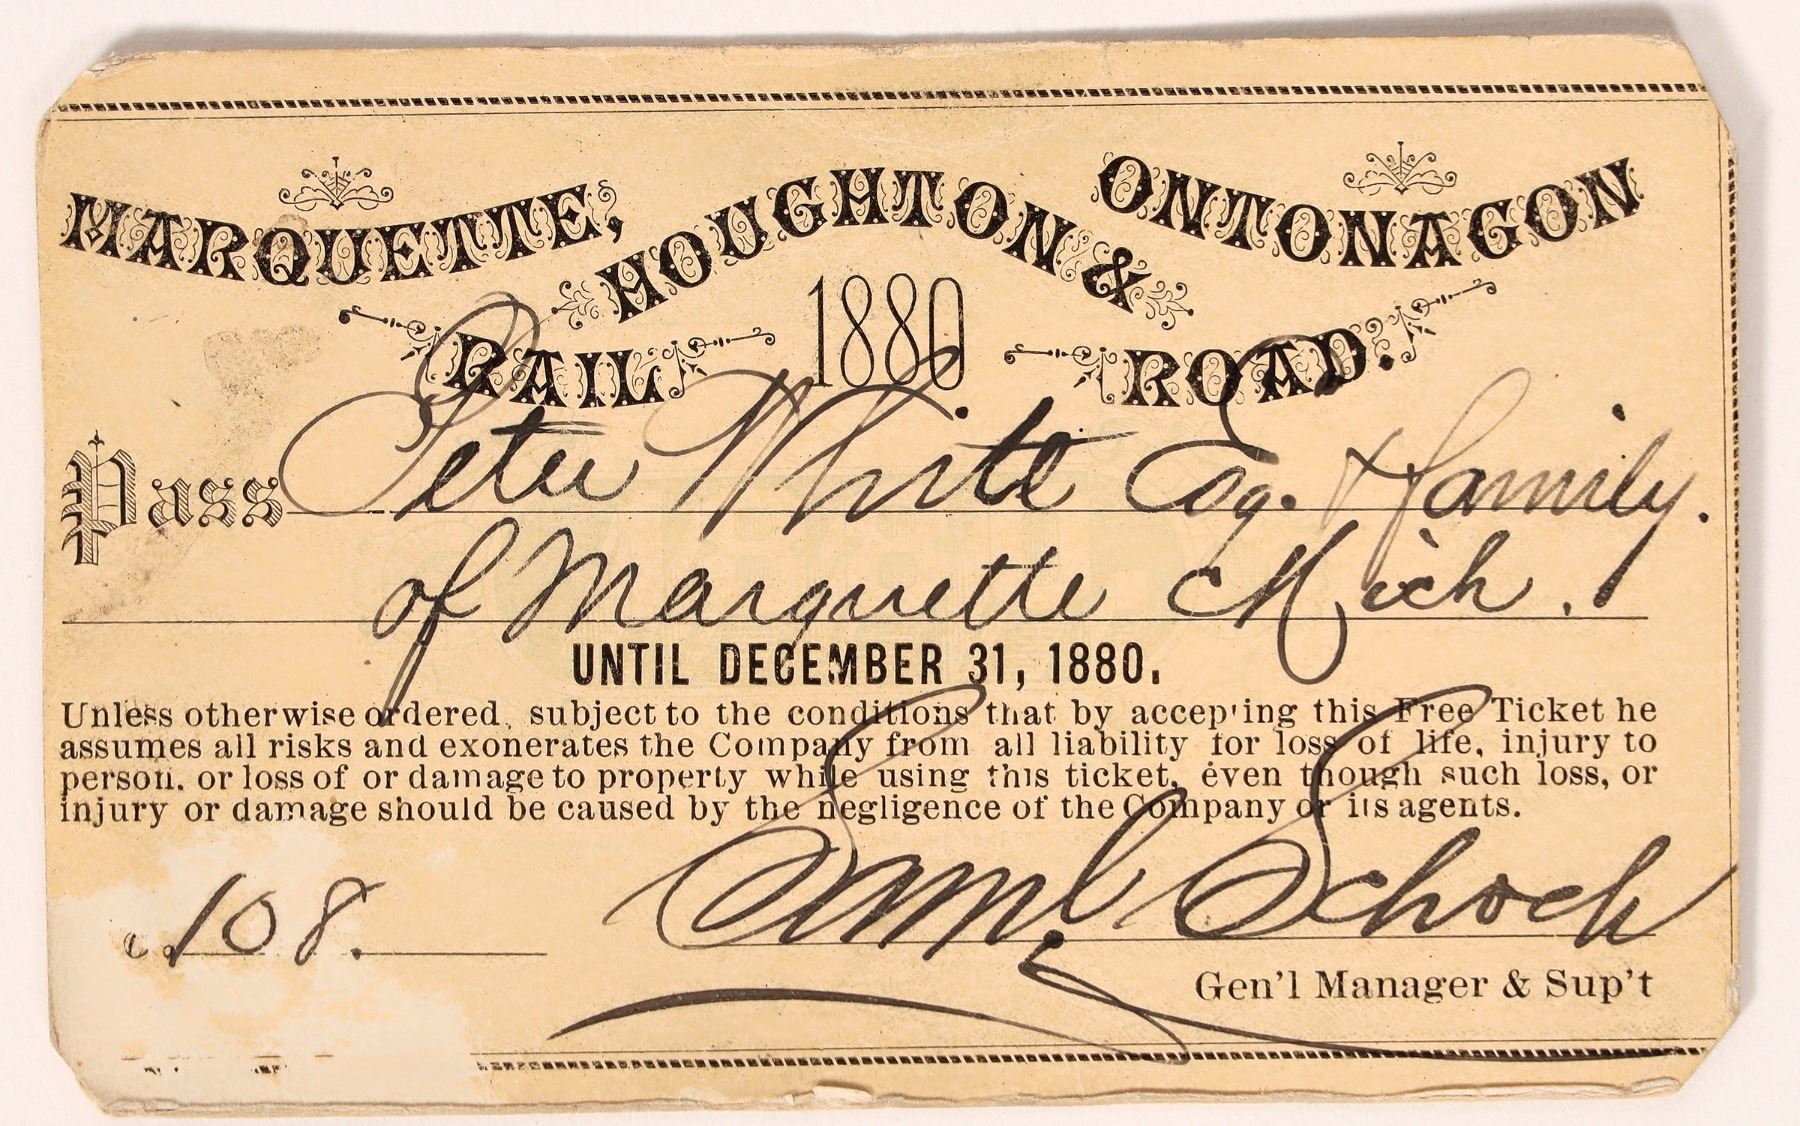 MARQUETTE, HOUGHTON & ONTONAGON
RAIL 1880 ROAD.
Pass Peter White Esq. & family.
of Marquette Mich.
UNTIL DECEMBER 31, 1880.
Unless otherwise ordered, subject to the conditions that by accepting this Free Ticket he
assumes all risks and exonerates the Company from all liability for loss of life, injury to
person, or loss of or damage to property while using this ticket, even though such loss, or
injury or damage should be caused by the negligence of the Company or its agents.
108. Saml. Schoch
Gen'l Manager & Sup't